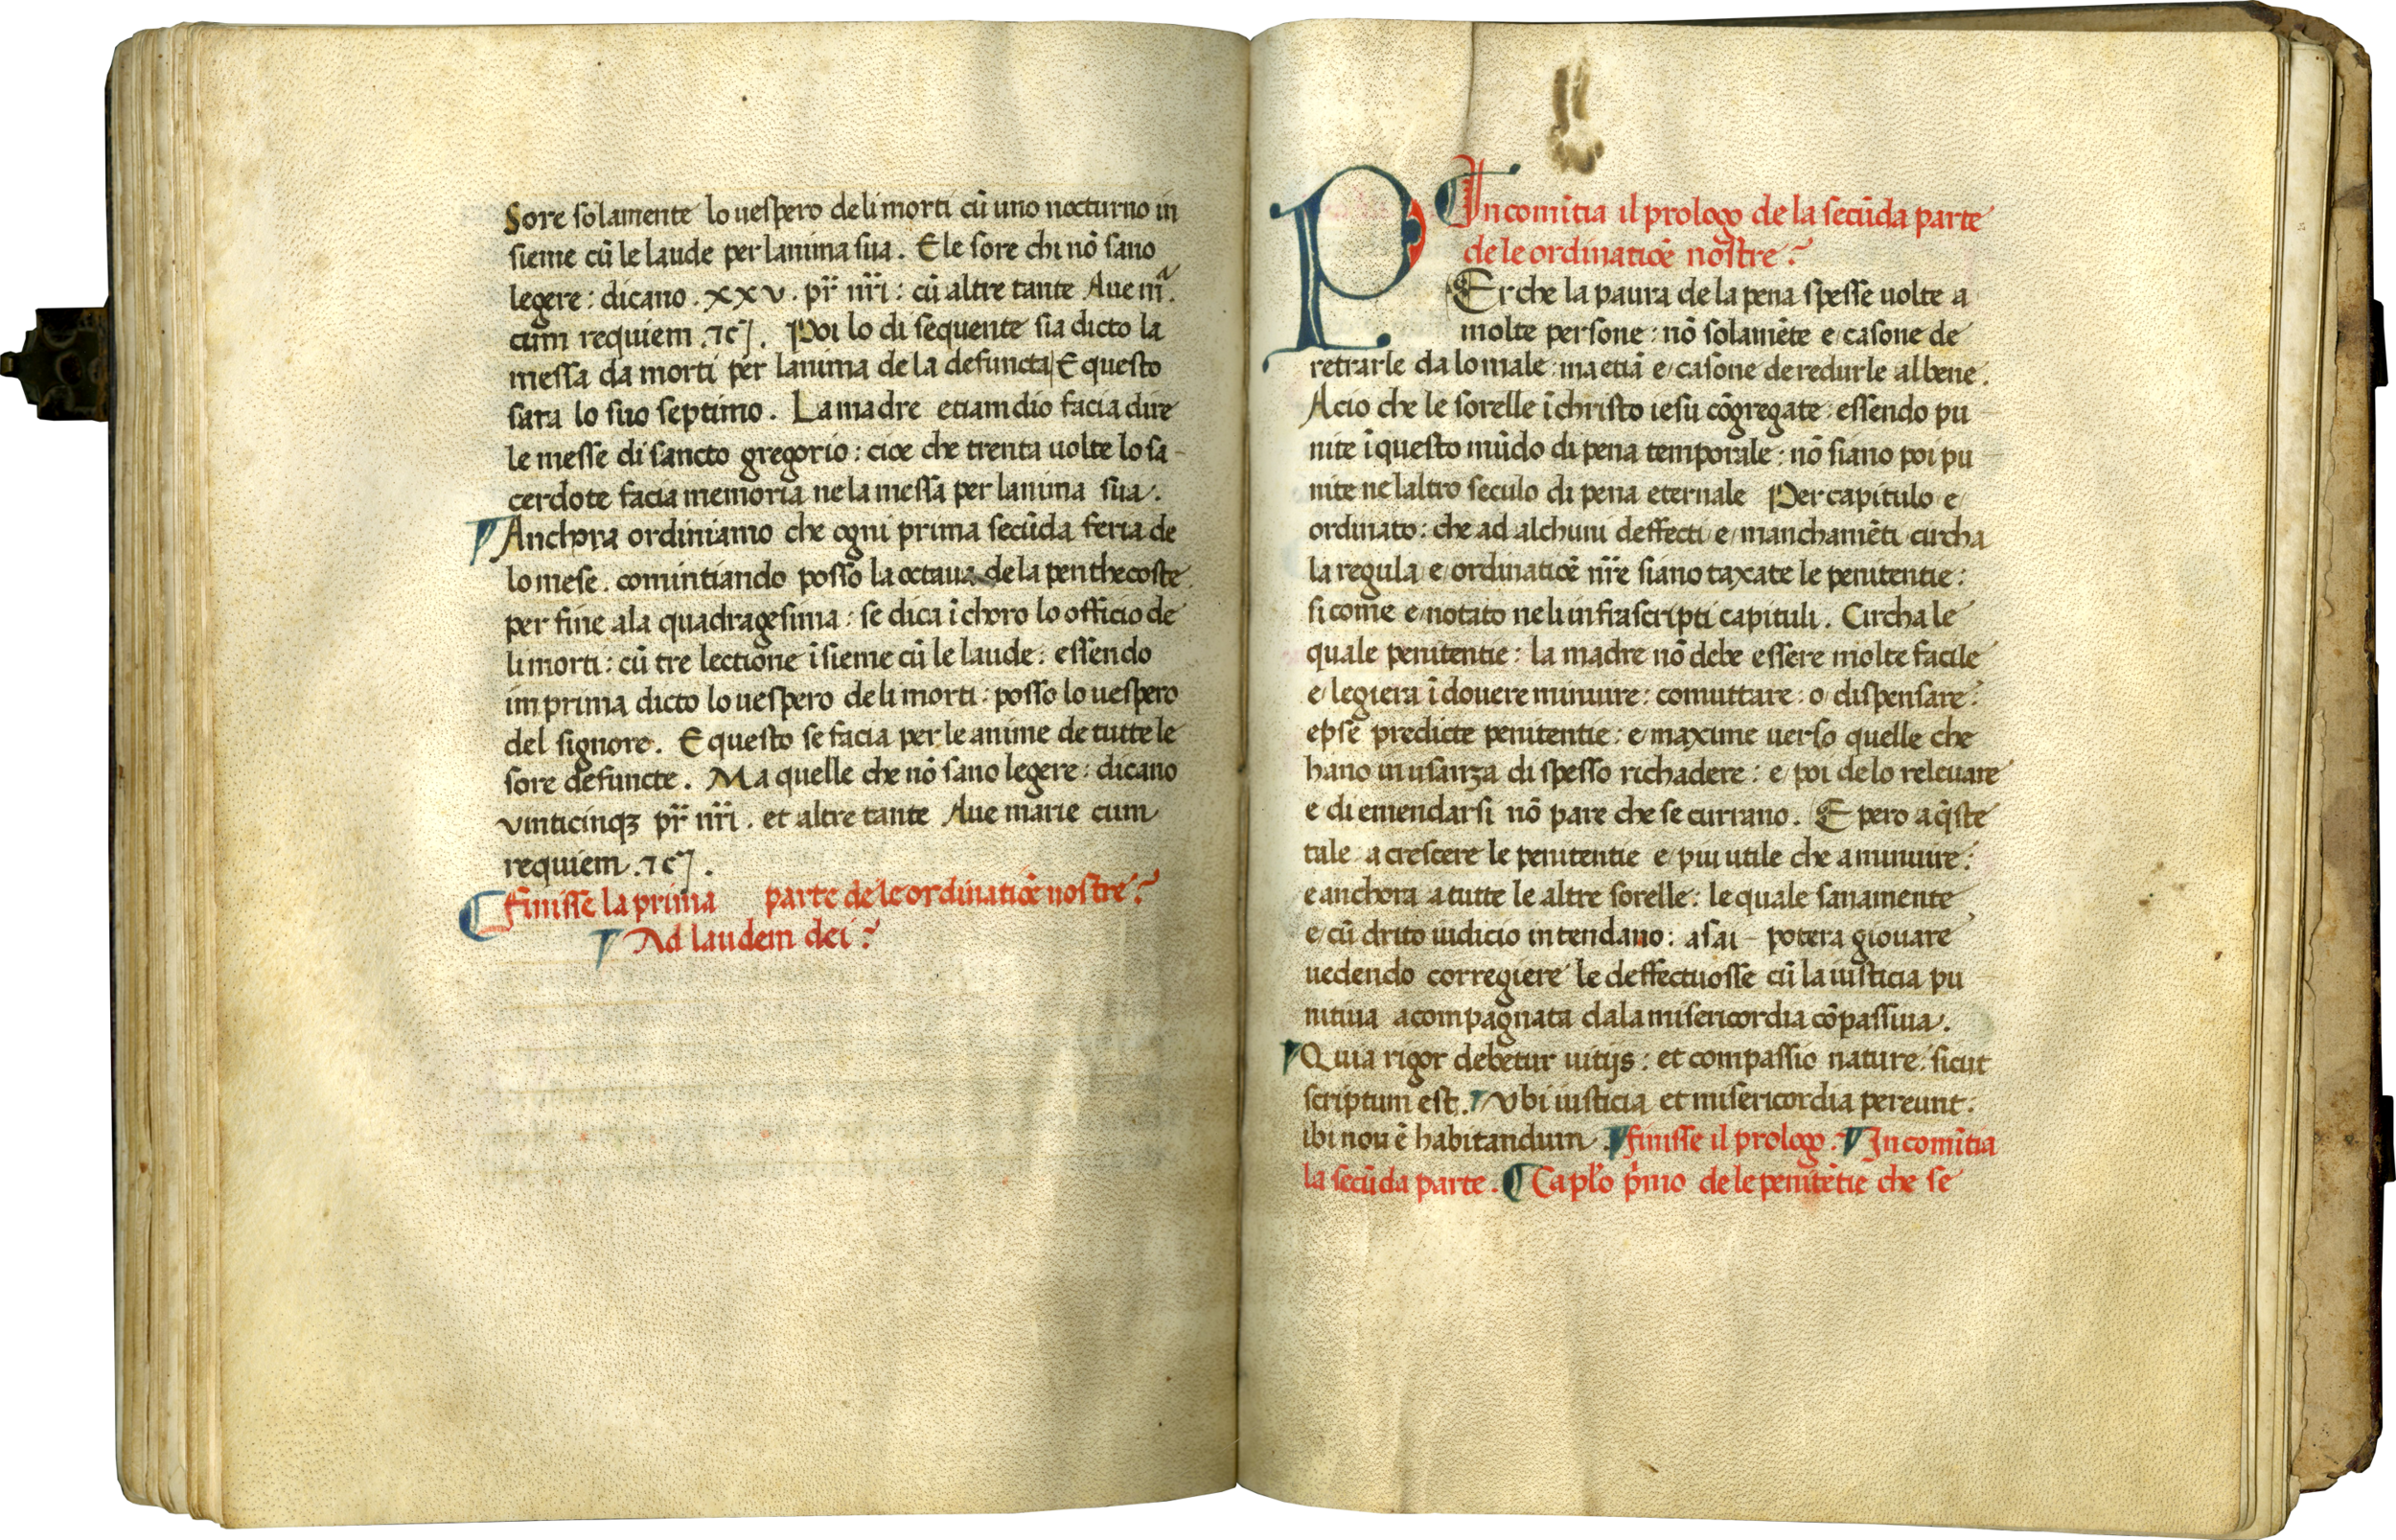 Sore solamente lo uespero de li morti cū uno nocturno in
sieme cū le laude per lanima sua. E le sore chi nō sano
legere: dicano .xxv. pr̄ nr̄i: cū altre tante Aue mᵃ.
cum requiem .⁊c̄. Poi lo di sequente sia dicto la
messa da morti per lanima de la defuncta E questo
sara lo suo septimo. La madre etiamdio facia dire
le messe di sancto gregorio: cioe che trenta uolte lo sa-
cerdote facia memoria ne la messa per lanima sua.
Anchora ordiniamo che ogni prima secūda feria de
lo mese. comintiando posso la octaua de la penthecoste
per fine ala quadragesima: se dica ī choro lo officio de
li morti: cū tre lectione īsieme cū le laude: essendo
imprima dicto lo uespero de li morti: posso lo uespero
del signore. E questo se facia per le anime de tutte le
sore defuncte. Ma quelle che nō sano legere: dicano
vinticinqꝫ pr̄ nr̄i. et altre tante Aue marie cum
requiem .⁊c̄.
Finisse la prima parte de le ordinatiōe nostre
Ad laudem dei
Incomītia il prologo de la secūda parte
de le ordinatiōe nostre
PErche la paura de la pena spesse uolte a
molte persone: nō solamēte e casone de
retrarle da lo male: ma etiā e casone de redurle al bene.
Acio che le sorelle ī christo iesu cōgregate: essendo pu
nite ī questo mūdo di pena temporale: nō siano poi pu
nite ne laltro seculo di pena eternale Per capitulo e
ordinato: che ad alchuni deffecti e manchamēti circha
la regula e ordinatiōe nr̄e siano taxate le penitentie:
si come e notato ne li infrascripti capituli. Circha le
quale penitentie: la madre nō debe essere molte facile
e legiera ī douere minuire: comuttare: o dispensare:
epse predicte penitentie: e maxime uerso quelle che
hano in usanza di spesso richadere: e poi de lo releuare
e di emendarsi nō pare che se currano. E pero a q̄ste
tale acrescere le penitentie e piu utile che aminuire:
e anchora a tutte le altre sorelle: le quale sanamente
e cū drito iudicio intendano: asai - potera giouare
uedendo corregiere le deffectuosse cū la iusticia pu
nitiua acompagnata dala misericordia cōpassiua.
Quia rigor debetur uitijs: et compassio nature: sicut
scriptum est. Vbi iusticia et misericordia pereunt:
ibi non ē habitandum. finisse il prologo. Incomītia
la secūda parte. Caplo pͥmo de le penitētie che se